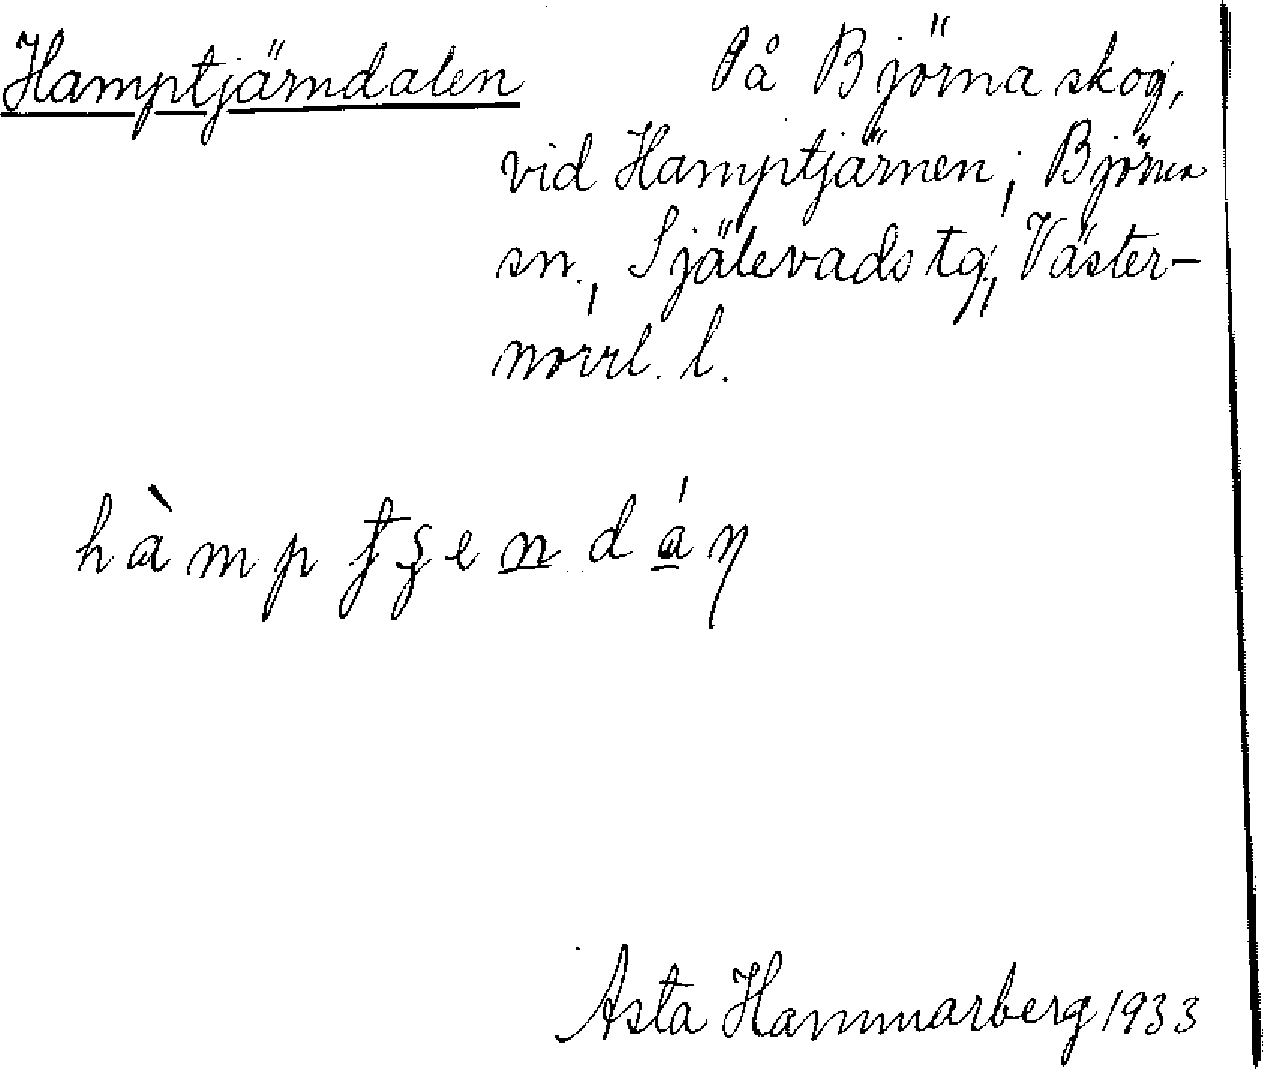 Hamptjärndalen På Björna skog,
vid Hamptjärnen; Björna
sn., Själevads tg, Väster-
norrl. l.
hàmp ʄʂen dáŋ
Asta Hammarberg 1933